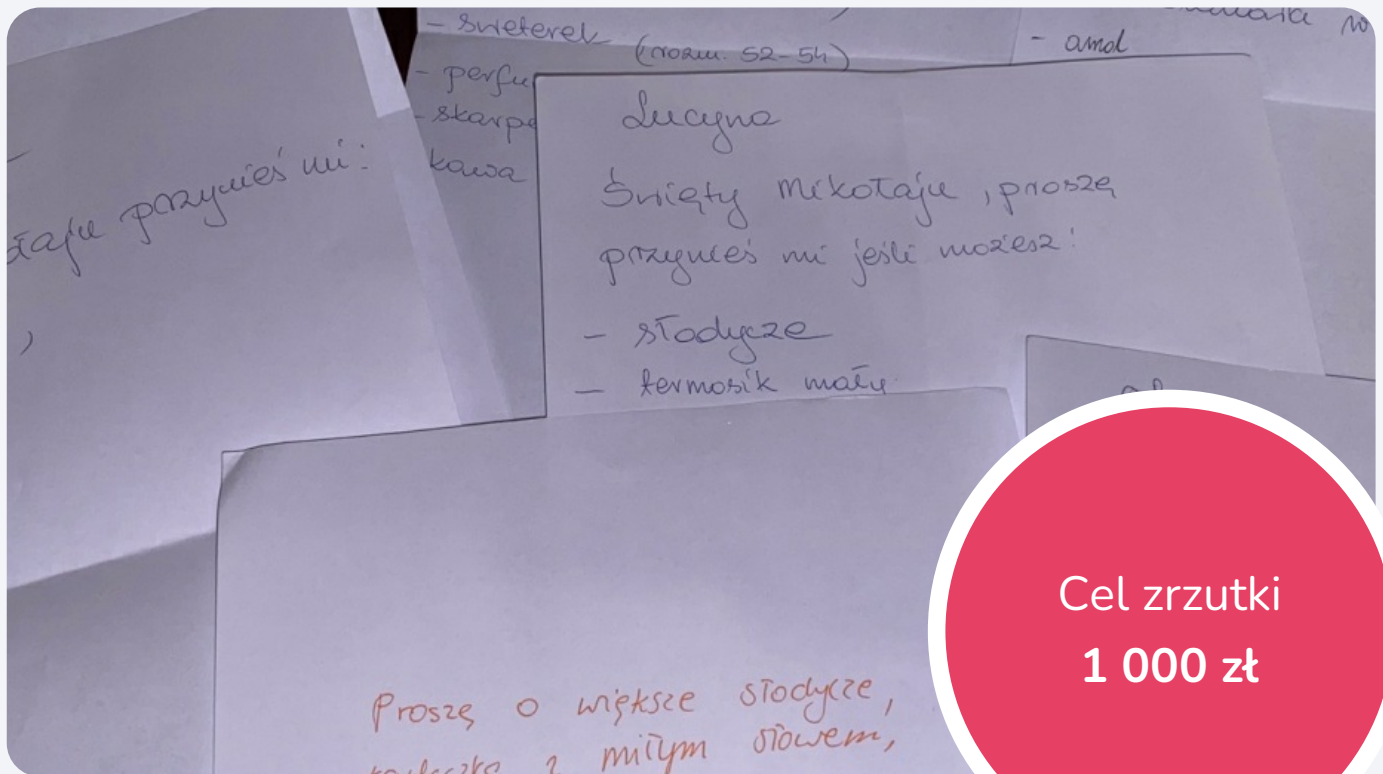 - sweterek
(rozm. 52-54)
- perfu
- skarpe
kawa
- amol
taju przynieś mi:
,
Lucyna
Święty Mikołaju, proszę
przynieś mi jeśli możesz:
- słodycze
- termosik mały
Proszę o większe słodycze,
z miłym słowem,
Cel zrzutki
1 000 zł